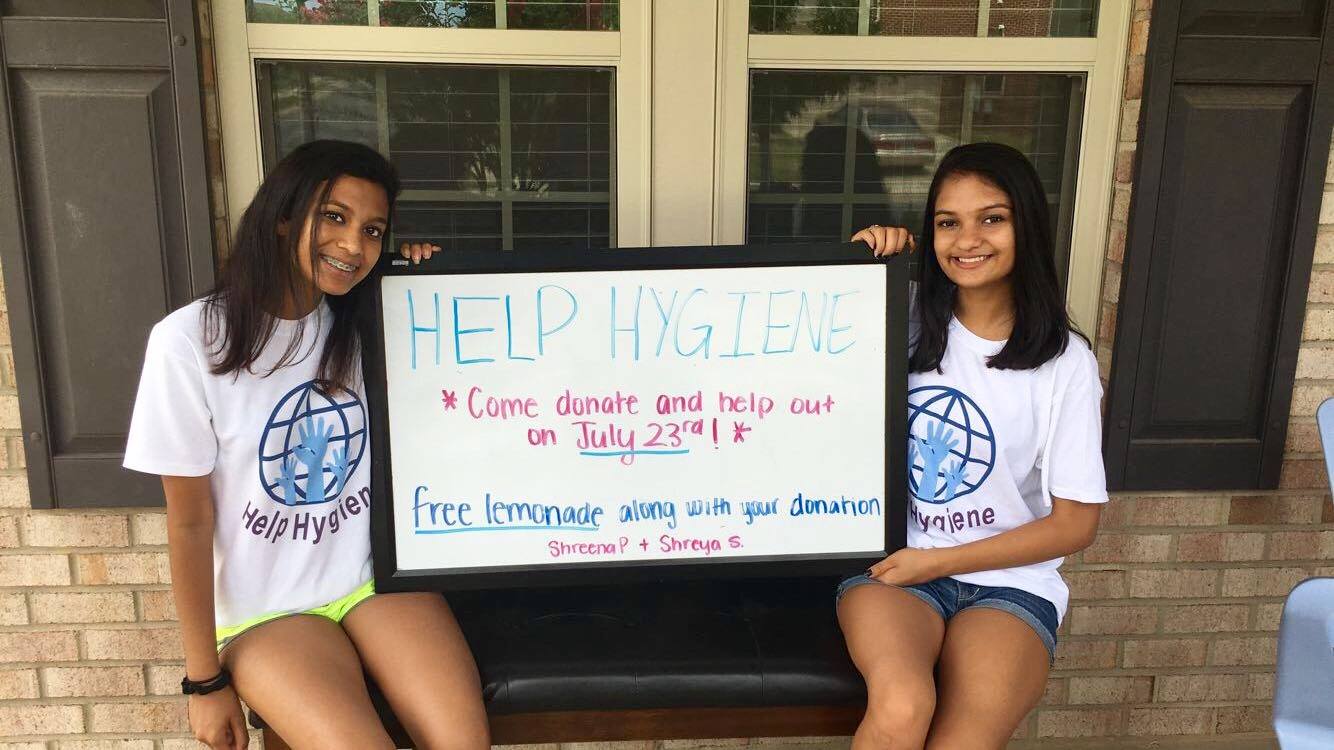 HELP HYGIENE
* Come donate and help out
on July 23rd! *
free lemonade along with your donation
Shreena P + Shreya S.
Help Hygien
Hygiene